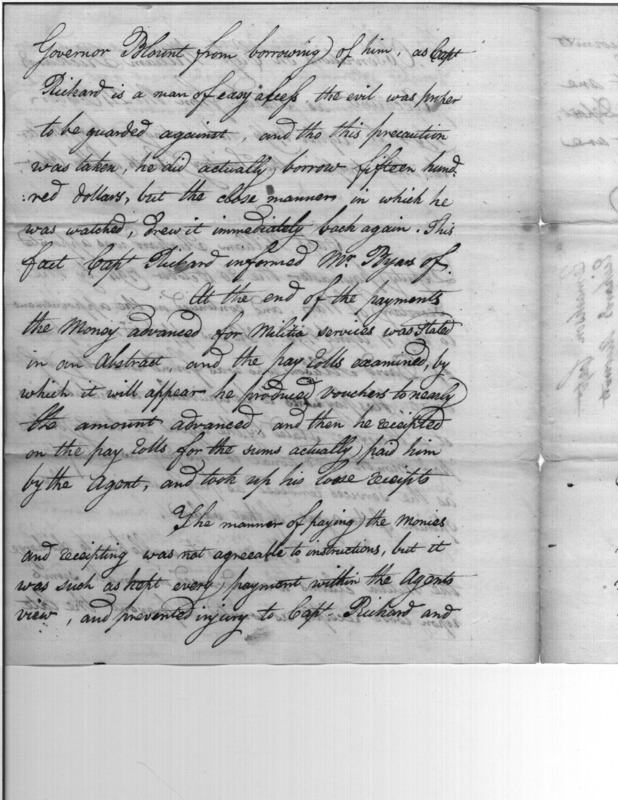 Governor Blount from borrowing of him, as Capt
Rickard is a man of easy access, the evil was proper
to be guarded against, and tho this precaution
was taken, he did actually borrow fifteen hund.
:red dollars, but the close manner in which he
was watched, drew it immediately back again. This
fact Capt Rickard informed Mr. Byars of.
At the end of the payments
the Money advanced for Militia services was Stated
in an Abstract and the pay rolls examined, by
which it will appear he produced vouchers to nearly
the amount advanced and then he receipted
on the pay rolls for the sums actually paid him
by the Agent, and took up his loose receipts
The manner of paying the monies
and receipting was not agreable to instructions, but it
was such as kept every payment within the Agents
view, and prevented injury to Capt. Rickard and